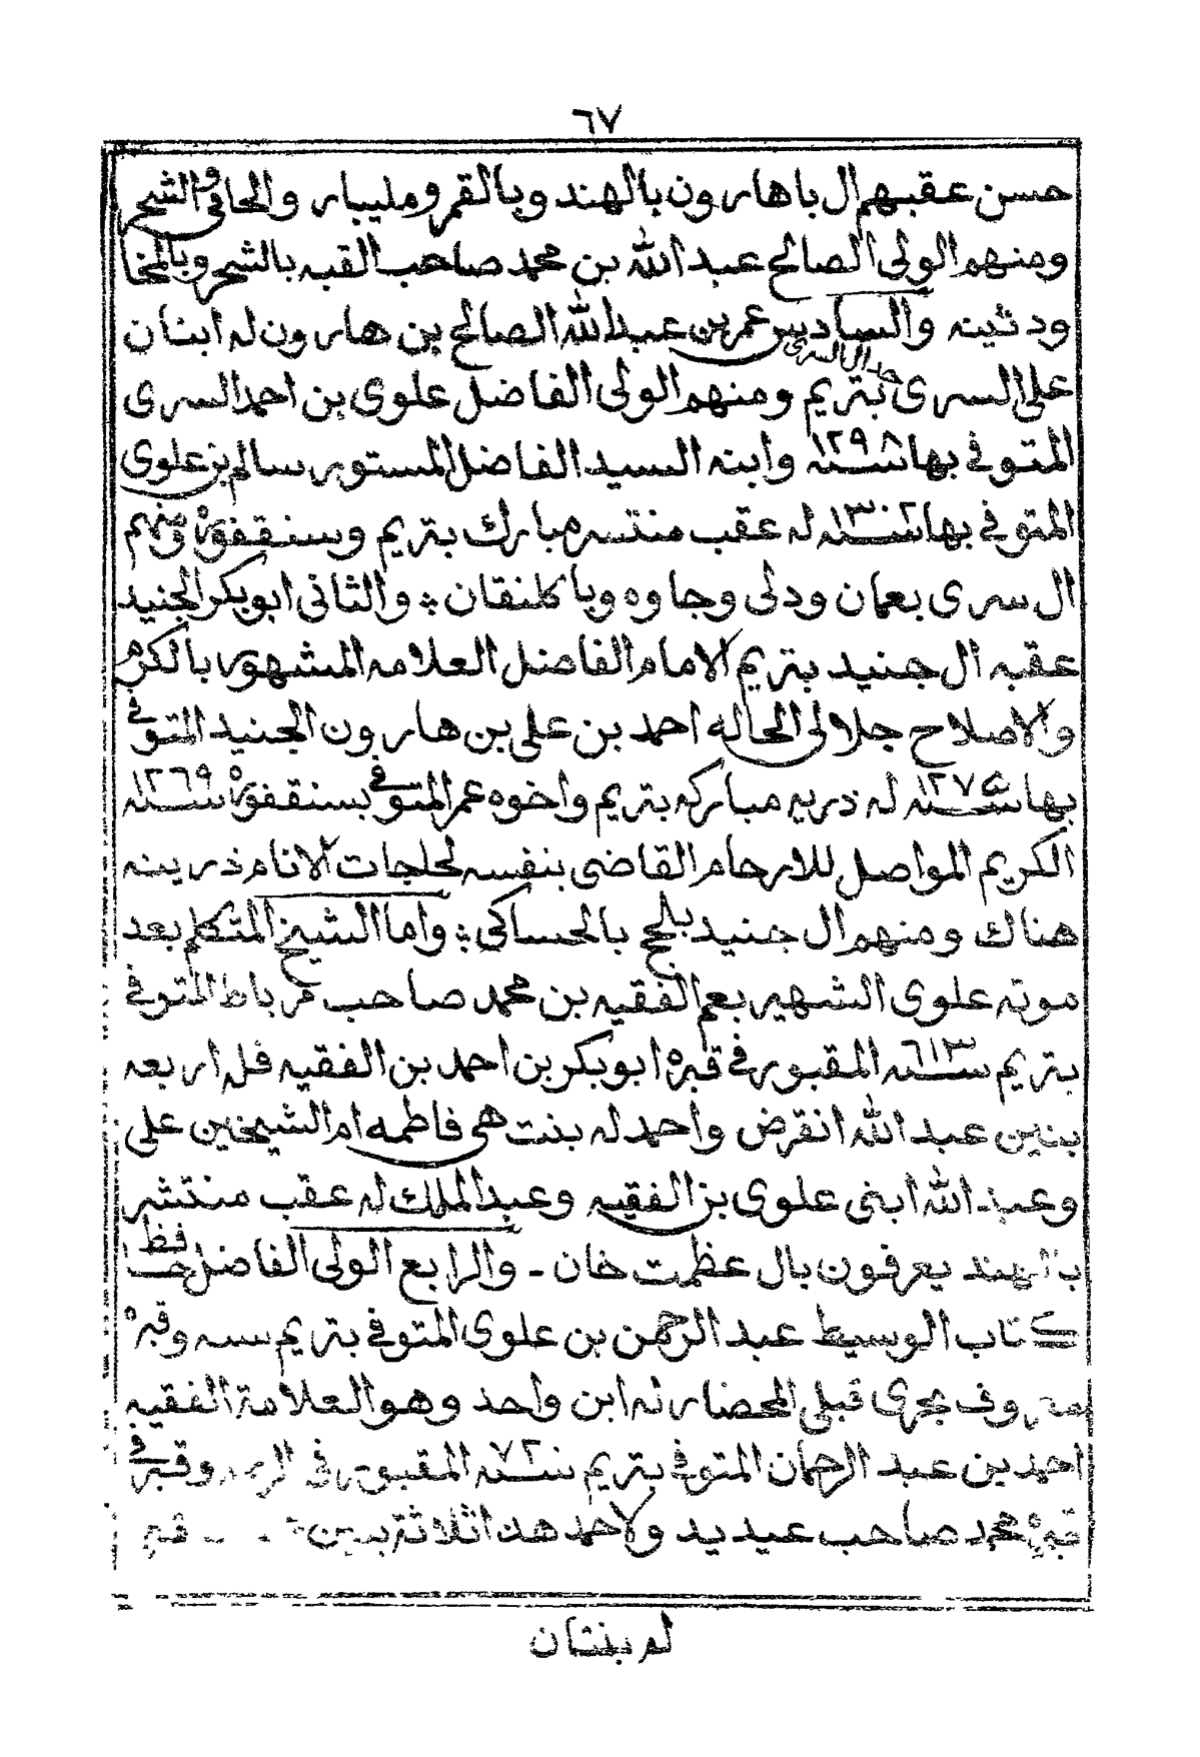 ٦٧
حسن عقبهم ال باهارون بالهند وبالقمر ومليبار والحافي والشحر
ومنهم الولى الصالح عبد الله بن محمد صاحب القبه بالشحر وبالمخا
ودثينه والسادس عمر بن عبد الله الصالح بن هارون له ابنان
جد ال السرى
على السرى بتريم ومنهم الولى الفاضل علوى بن احمد السرى
المتوفى بها سنه ١٢٩٨ وابنه السيد الفاضل المستور سالم بن علوى
المتوفى بها سنه ١٣٠٢ له عقب منتسر مبارك بتريم وسنقفوره ومنهم
ال سرى بعمان ودلى وجاوه وبا كلنقان والثانى ابوبكر الجنيد
عقبه ال جنيد بتريم الامام الفاضل العلامه المشهور بالكرم
والاصلاح جلالى الحاله احمد بن على بن هارون الجنيد المتوفى
بها سنه ١٢٧٥ له ذريه مباركه بتريم واخوه عمر المتوفى بسنقفوره سنه ١٢٦٩
الكريم المواصل للارحام القاضى بنفسه لحاجات الانام ذريته
هناك ومنهم ال جنيد بلحج بالحساكى واما الشيخ المتكلم بعد
موته علوى الشهير بعم الفقيه بن محمد صاحب مرباط المتوفى
بتريم سنه ٦١٣ المقبور فى قبره ابوبكر بن احمد بن الفقيه فله اربعه
بنين عبد الله انقرض واحمد له بنت هى فاطمه ام الشيخين على
وعبد الله ابنى علوى بن الفقيه وعبد الملك له عقب منتشر
بالهند يعرفون بال عظمت خان - والرابع الولى الفاضل حافظ
كتاب الوسيط عبد الرحمن بن علوى المتوفى بتريم سنه وقبره
معروف بجرى قبلى المحضار له ابن واحد وهو العلامة الفقيه
احمد بن عبد الرحمان المتوفى بتريم سنه ٧٢٠ المقبور فى وقبر فى
قبره محمد صاحب عيديد ولاحمد هذا ثلاثة بنين
له بنتان